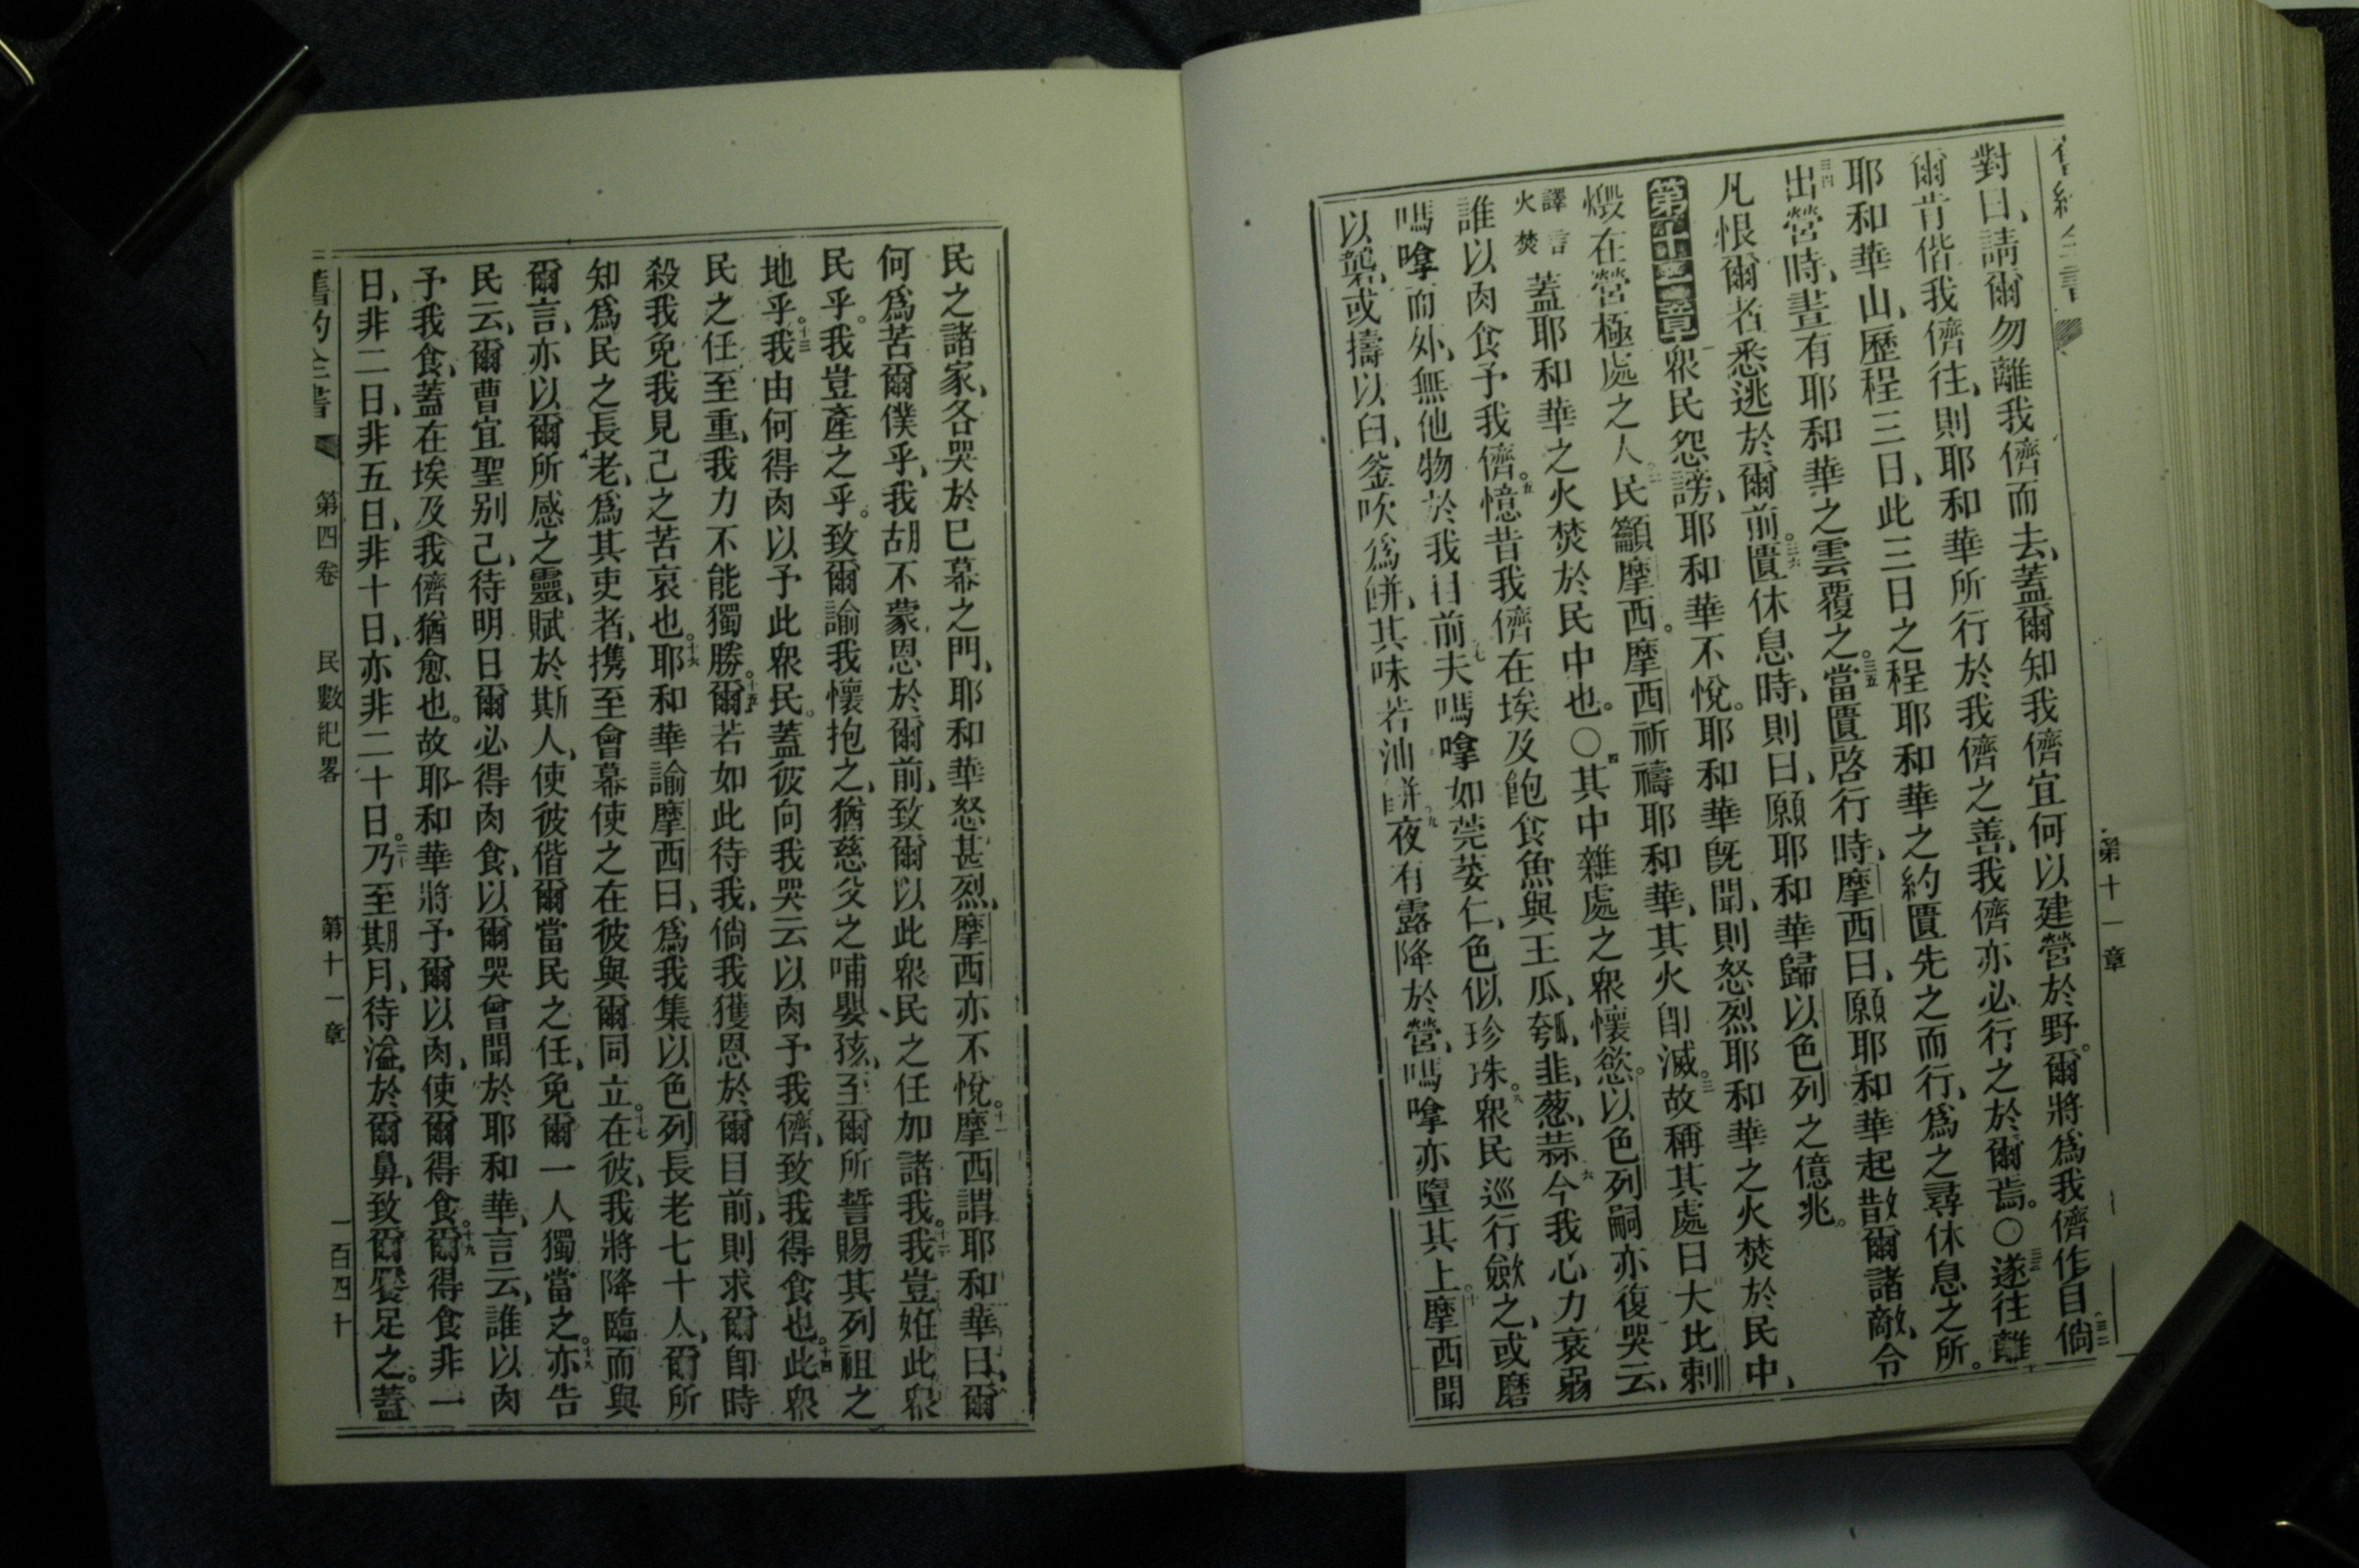 第十一章
對曰、請爾勿離我儕而去、蓋爾知我儕宜何以建營於野。爾將爲我儕作目。三二倘
爾肯偕我儕往、則耶和華所行於我儕之善、我儕亦必行之於爾焉。〇三三遂往離
耶和華山、歷程三日、此三日之程耶和華之約匱先之而行、爲之尋休息之所。
三四出營時、晝有耶和華之雲覆之。三五當匱啓行時、摩西曰、願耶和華起散爾諸敵、令
凡恨爾者悉逃於爾前。三六匱休息時、則曰、願耶和華歸以色列之億兆。
第十一章 一衆民怨謗、耶和華不悅。耶和華既聞、則怒烈耶和華之火焚於民中、
燬在營極處之人。二民籲摩西。摩西祈禱耶和華、其火卽滅。三故稱其處曰大比剌
譯言火焚 蓋耶和華之火焚於民中也。〇四其中雜處之衆懷慾。以色列嗣亦復哭云、
誰以肉食予我儕。五憶昔我儕在埃及飽食魚與王瓜、瓠、韭、葱、蒜。六今我心力衰弱
嗎嗱而外、無他物於我目前。七夫嗎嗱如莞荽仁、色似珍珠。八衆民巡行歛之、或磨
以磐、或擣以臼、釜炊爲餅、其味若油餅。九夜有露降於營、嗎嗱亦墮其上。十摩西聞
民之諸家、各哭於已幕之門、耶和華怒甚烈、摩西亦不悅。十一摩西謂耶和華曰、爾
何爲苦爾僕乎、我胡不蒙恩於爾前、致爾以此衆民之任加諸我。十二我豈姙此衆
民乎。我豈產之乎。致爾諭我懷抱之、猶慈父之哺嬰孩、至爾所誓賜其列祖之
地乎。十三我由何得肉以予此衆民。蓋彼向我哭云以肉予我儕、致我得食也。十四此衆
民之任至重、我力不能獨勝。十五爾若如此待我、倘我獲恩於爾目前、則求爾卽時
殺我免我見己之苦哀也。十六耶和華諭摩西曰、爲我集以色列長老七十人、爾所
知爲民之長老、爲其吏者、携至會幕使之在彼與爾同立。十七在彼、我將降臨而與
爾言、亦以爾所感之靈、賦於斯人、使彼偕爾當民之任、免爾一人獨當之。十八亦告
民云、爾曹宜聖别己、待明日爾必得肉食、以爾哭曾聞於耶和華、言云、誰以肉
予我食、蓋在埃及我儕猶愈也。故耶和華將予爾以肉、使爾得食。十九爾得食非一
日、非二日、非五日、非十日、亦非二十日。二十乃至期月、待溢於爾鼻、致爾饜足之。蓋
舊約全書 第四卷 民數紀畧 第十一章 一百四十